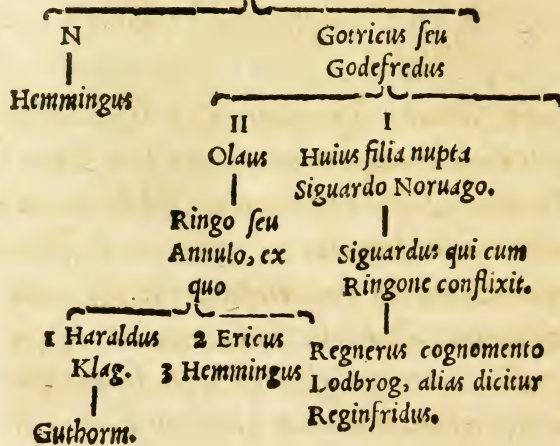 N
Hemmingus
Gotricus ſeu
Godefredus
II
Olaus
Ringo ſeu
Annulo, ex
quo
1 Haraldus
Klag.
Guthorm.
2 Ericus
3 Hemmingus
I
Huius filia nupta
Siguardo Noruago.
Siguardus qui cum
Ringone conflixit.
Regnerus cognomento
Lodbrog, alias dicitur
Reginfridus.